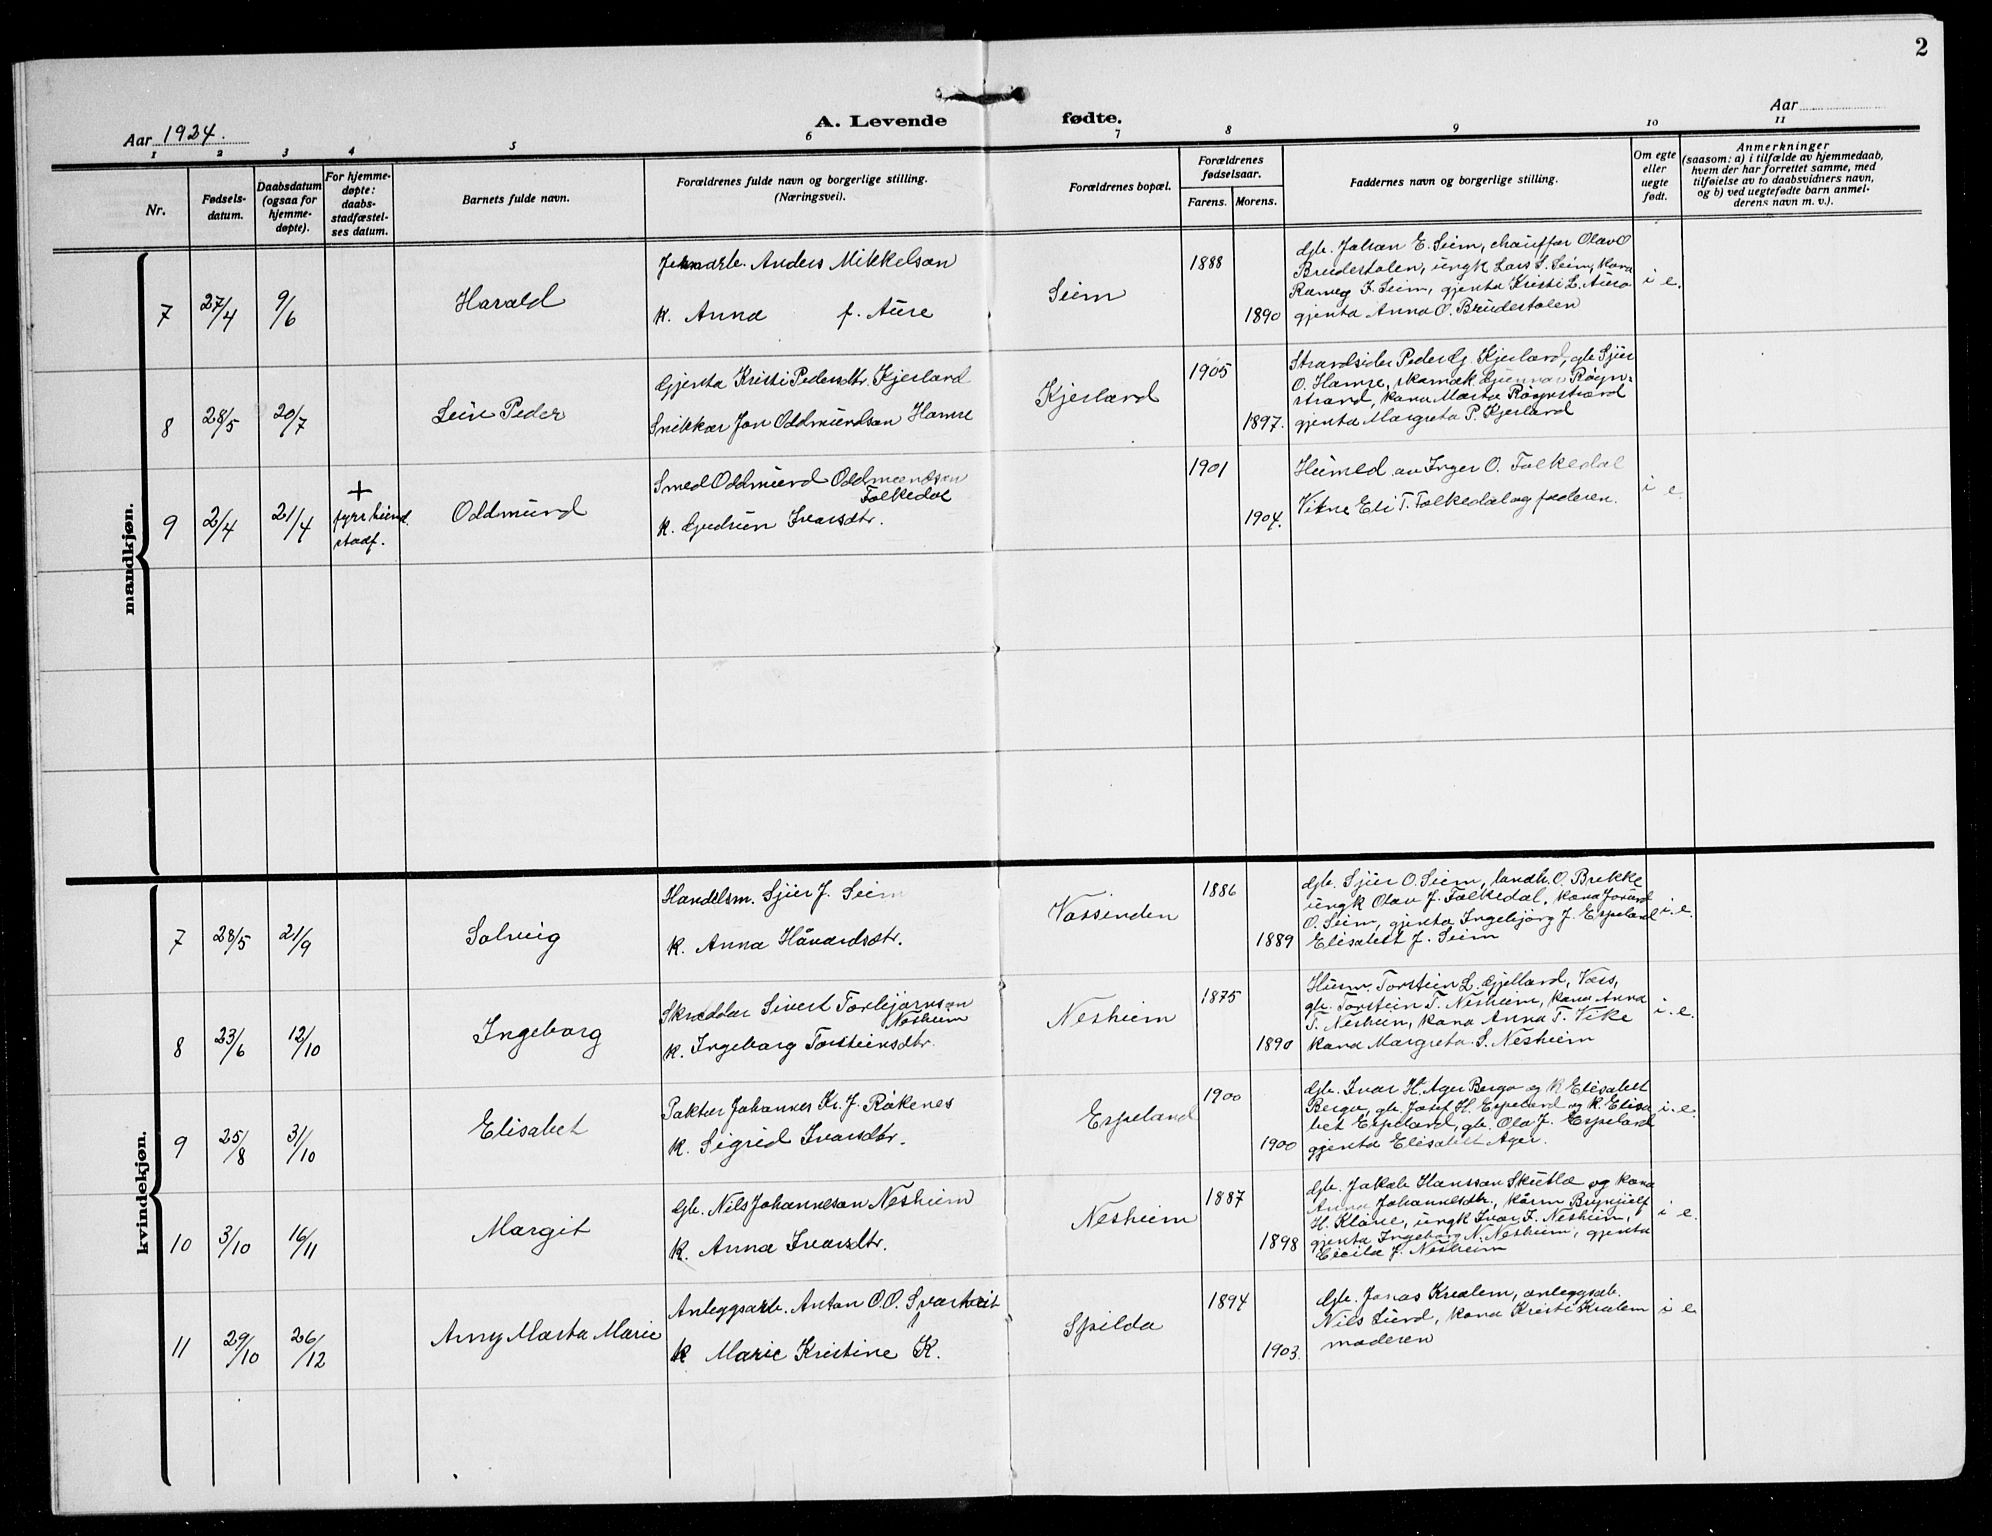 2
Aar 1924.
A. Levende fødte.
Aar
1 2 3 4 5 6 7 8 9 10 11
Nr.
Fødsels-
datum.
Daabsdatum
(ogsaa for
hjemme-
døpte).
For hjemme-
døpte:
daabs-
stadfæstel-
ses datum.
Barnets fulde navn.
Forældrenes fulde navn og borgerlige stilling.
(Næringsvei).
Forældrenes bopæl.
Forældrenes
fødselsaar.
Farens. Morens.
Faddernes navn og borgerlige stilling.
Om egte
eller
uegte
født.
Anmerkninger
(saasom: a) i tilfælde av hjemmedaab,
hvem der har forrettet samme, med
tilføielse av to daabsvidners navn,
og b) ved uegtefødte barn anmel-
derens navn m. v.).
mandkjøn.
7 27/4 9/6 Harald
Anders Mikkelson
k. Anna f. Aure
Seim
1888
1890
gb. Johan E. Seim, chauffør Olav O
Brudestolen, ungk Lars S. Seim, kona
F. Seim, gjenta Kristi L. Aure
gjenta Anna O. Brudestolen
i e.
8 28/5 20/7 Peder
Gjenta Kristi Pedersdtr. Kjerland
Snikkar Jon Oddmundson Hamre
Kjerland
1905
1897.
Strandsiter Peder G. Kjerland, gb Sjur
O. Hamre, Røgn-
strand, kona Marta Røgnstrand
gjenta Margreta P. Kjerland
9 2/4 21/4
+
fyrr hund.
stadf.
Oddmund
Smed Oddmund Oddmundson
Folkedal
k. Gudrun Ivarsdtr.
1901
1904.
Heimed av Inger O. Folkedal
Vitne Eli T. Folkedal og faderen.
i e.
kvindekjøn.
7 28/5 21/9 Solveig
Handelsm. Sjur J. Seim
k. Anna Håvardsdtr.
Vassenden
1886
1889
gb. Sjur O. Seim, landh. O. Brekke
ungk Olav J. Folkedal, kona
O. Seim, gjenta Ingebjörg J. Espeland
Elisabet J. Seim
i. e.
8 23/6 12/10 Ingeborg
Skreddar Sivert Torbjørnson
Nesheim
k. Ingeborg Torsteinsdtr.
Nesheim
1875
1890
Husm. Torstein L. Gjelland, Voss,
gb. Torstein T. Nesheim, kona Anna
T. Nesheim, kona Anna T. Vike
kona Margreta S. Nesheim
i. e.
9 25/8 31/10 Elisabet
Paktar Johannes Kr. J. Røkenes
k. Sigrid Ivarsdtr.
Espeland
1900
1900
gb. Ivar H. Ager Berge og k Elisabet
Berge, gb. Josef H. Espeland og k. Elisa
bet Espeland, gb. Ola J. Espeland
gjenta Elisabet Ager.
i. e.
10 3/10 16/11 Margit
gb. Nils Johanneson Nesheim
k. Anna Ivarsdtr.
Nesheim
1887
1898
gb. Jakob Hansson Skutle og kona
Anna Johannesdtr, Brynjulf
H. Kløve, ungk Ivar J. Nesheim,
gjenta Ingeborg N. Nesheim, gjenta
Cecilia J. Nesheim
i e.
11 29/10 26/12 Anny Marta Marie
Anleggsarb. Anton O.O.
k Marie Kristine K.
Spilda
1894
1903.
gb. Jonas Kvalem, anleggsab.
Nils Lund, kona Kristi Kvalem
moderen
i e